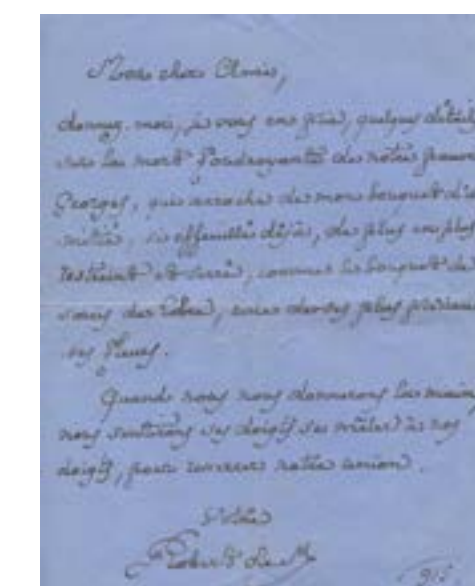 Mon cher Amis,
donnez-moi, je vous en prie, quelques détails
sur la mort foudroyante de notre pauvre
Georges, qui arrache de mon bouquet d'a
mitiés, si effeuillé déjà, de plus en plus
restreint et serré, comme le bouquet de
une des plus
ses fleurs.
Quand nous nous donnerons les mains
nous sentirons ses doigts se mêler à nos
doigts, pour resserrer notre union.
Votre
Robert de M